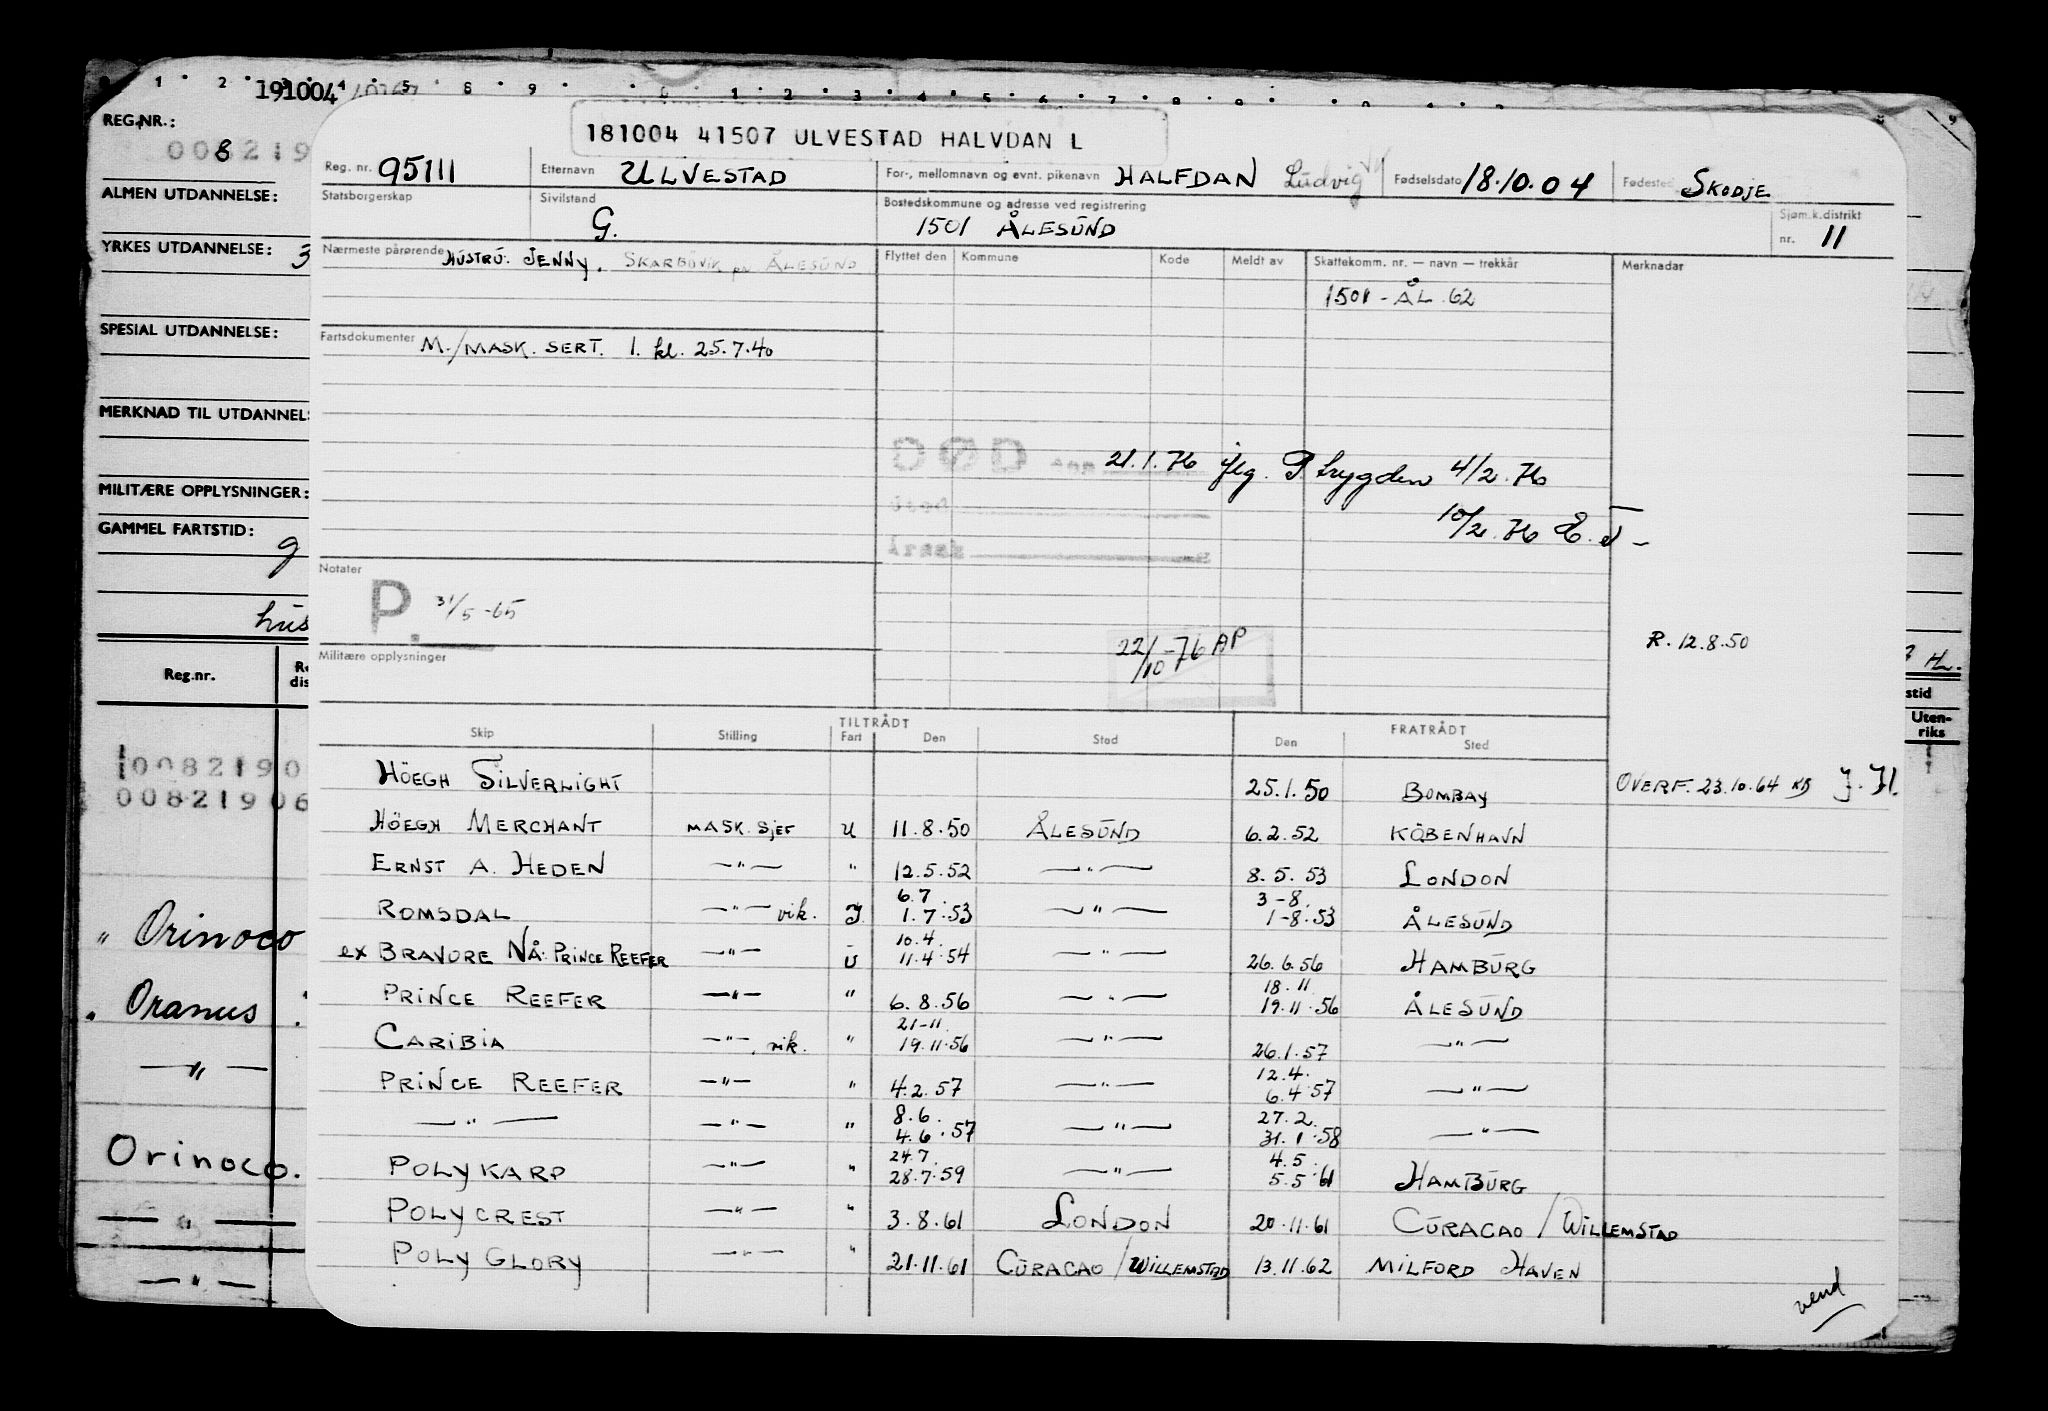 1 2 3 4 5 8 9 1 2 3 4 5 6 7 8 9
191004
REG.NR.:
008219
8
ALMEN UTDANNELSE:
YRKES UTDANNELSE: 3
SPESIAL UTDANNELSE:
MERKNAD TIL UTDANNELS
MILITÆRE OPPLYSNINGER:
GAMMEL FARTSTID:
g
hus
Reg.nr.
0082190
00821906
" Orinoco
" Oranus
— " —
Orinoco.
— " —
— " —
181004 41507 ULVESTAD HALVDAN L
Reg. nr. 95111 Etternavn ULVESTAD For-, mellomnavn og evnt. pikenavn HALFDAN Ludvig Fødselsdato 18.10.04 Fødested SKODJE
Statsborgerskap Sivilstand G. Bostedskommune og adresse ved registrering 1501 ÅLESUND Sjøm.k.distrikt nr. 11
Nærmeste pårørende HUSTRU: JENNY, SKARBÖVIK pr ÅLESUND Flyttet den Kommune Kode Meldt av Skattekomm. nr. — navn — trekkår Merknadar
1501 - ÅL. 62
Fartsdokumenter M./MASK. SERT. 1. kl. 25.7.40
DØD 21.1.76 flg. P. trygden 4/2.76
10/2.76
Årsak
Notater
P. 31/5-65
22/10-76 AP
R. 12.8.50
Militære opplysninger
TILTRÅDT FRATRÅDT
Skip Stilling Fart Den Stad Den Sted
HÖEGH SILVERLIGHT 25.1.50 BOMBAY OVERF. 23.10.64
HÖEGH MERCHANT MASK. SJEF U 11.8.50 ÅLESUND 6.2.52 KÖBENHAVN
ERNST A. HEDEN — " — " 12.5.52 — " — 8.5.53 LONDON
6.7. 3-8.
ROMSDAL — " — vik. J. 1.7.53 — " — 1-8.53 ÅLESUND
10.4.
ex BRAVORE NÅ: PRINCE REEFER — " — U 11.4.54 — " — 26.6.56 HAMBURG
18.11
PRINCE REEFER — " — " 6.8.56 — " — 19.11.56 ÅLESUND
21-11.
CARIBIA — " — vik. " 19.11.56 — " — 26.1.57 — " —
12.4.
PRINCE REEFER — " — " 4.2.57 — " — 6.4.57 — " —
8.6. 27.2.
— " — — " — " 4.6.57 — " — 31.1.58 — " —
24.7. 4.5.
POLYKARP — " — " 28.7.59 — " — 5.5.61 HAMBURG
POLYCREST — " — " 3.8.61 LONDON 20.11.61 CURACAO / WILLEMSTAD
POLY GLORY — " — " 21.11.61 CURACAO / WILLEMSTAD 13.11.62 MILFORD HAVEN
vend
stid
Uten-
riks